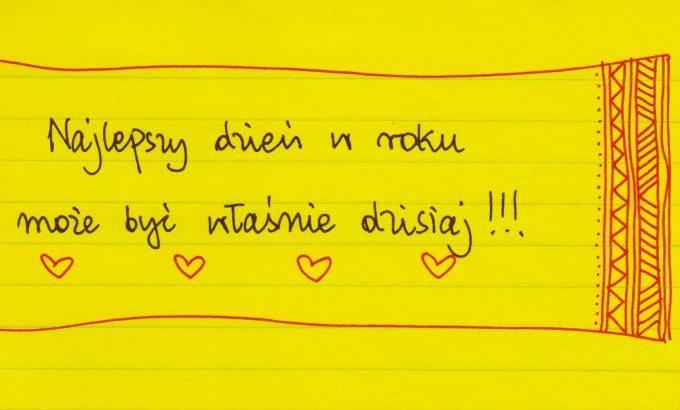 Najlepszy dzień w roku
może być właśnie dzisiaj !!!